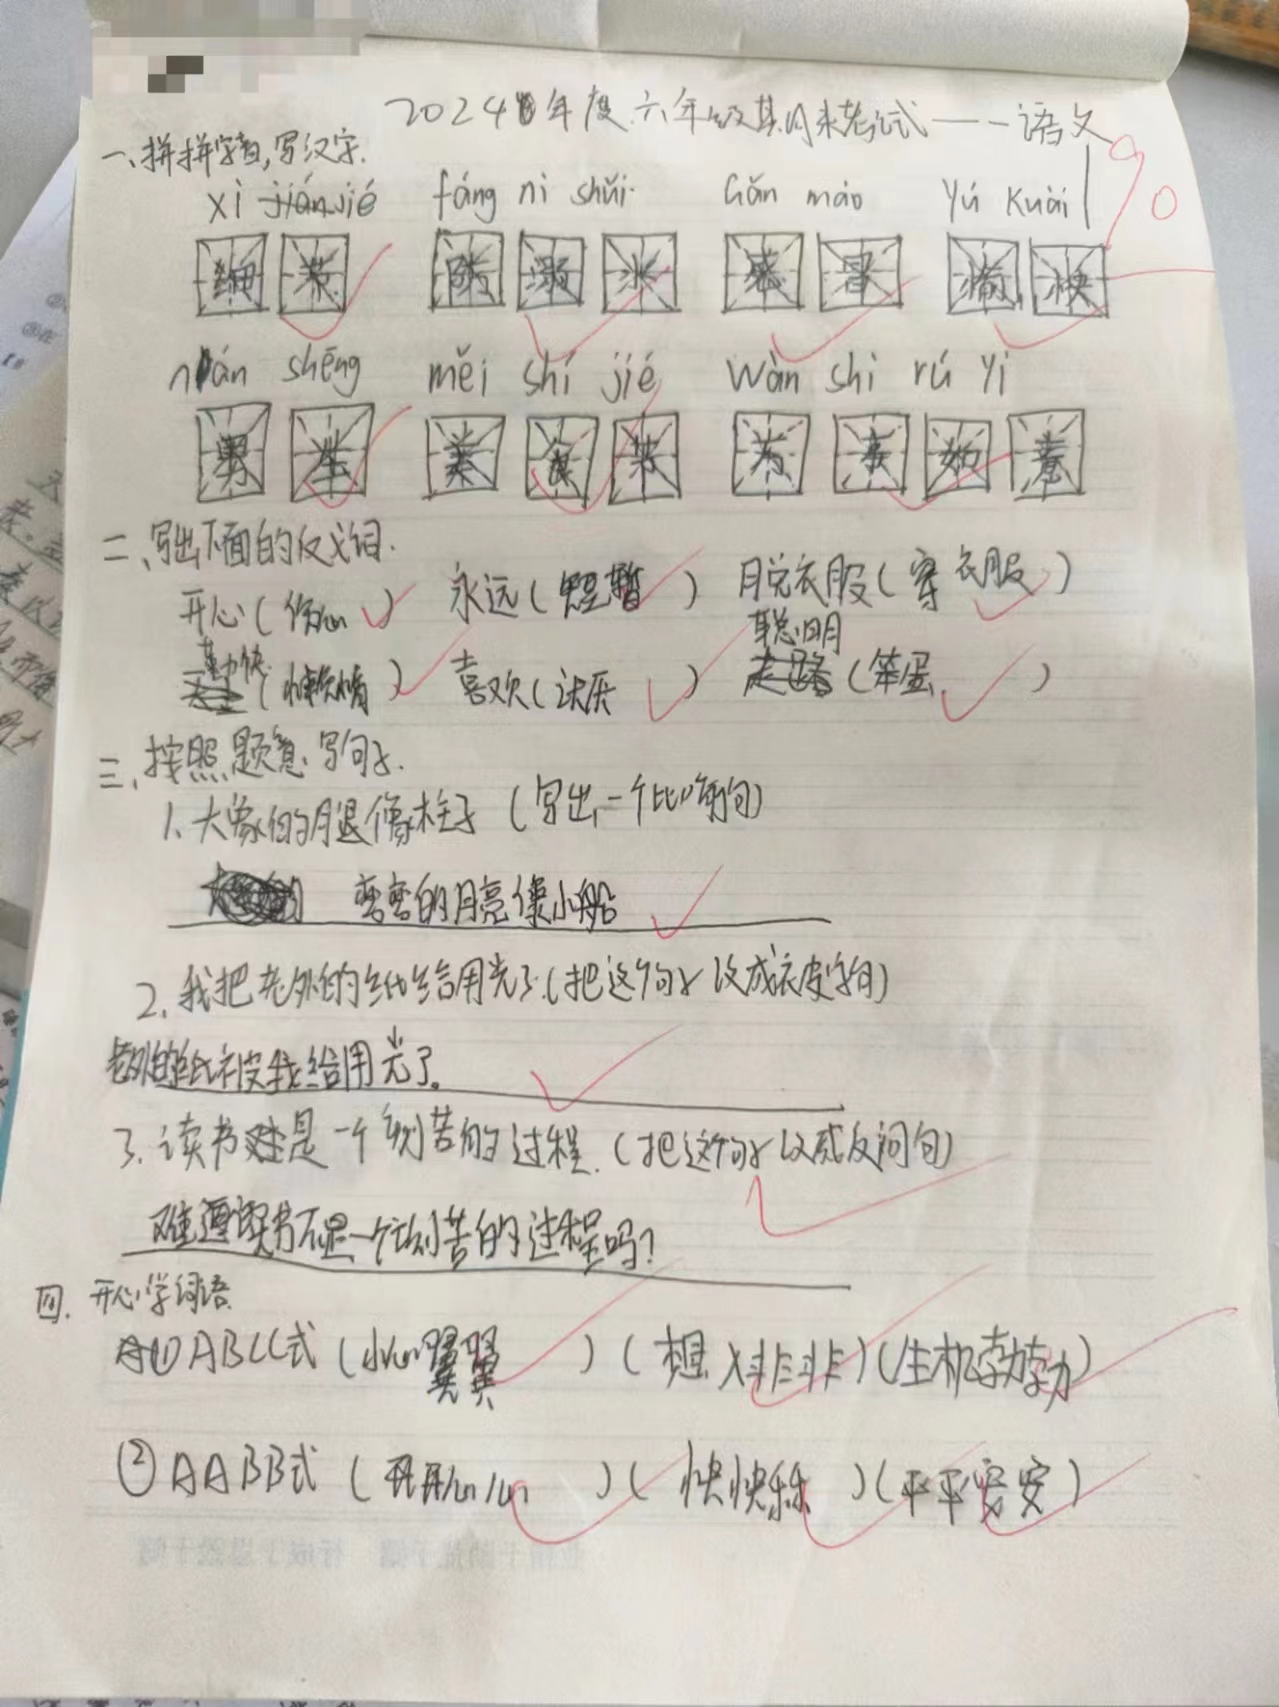 2024年度六年级期末考试——语文
一、拼拼字音,写汉字.
xì jié fáng nì shuǐ Gǎn mào Yú Kuài
细 节 防 溺 水 感 冒 愉 快
nán shēng měi shí jié wàn shì rú yì
男 生 美 食 节 万 事 如 意
二、写出下面的反义词.
开心(伤心) 永远(短暂) 脱衣服(穿衣服)
勤快(懒惰) 喜欢(讨厌) 聪明(笨蛋)
三、按照题意写句子.
1、大象的腿像柱子(写出一个比喻句)
弯弯的月亮像小船
2、我把老外的纸给用光了.(把这个句子改成被字句)
老外的纸被我给用光了。
3、读书是一个刻苦的过程.(把这个句子改成反问句)
难道读书不是一个刻苦的过程吗?
四、开心学词语.
①ABCC式(小心翼翼)(想入非非)(生机勃勃)
②AABB式(开开心心)(快快乐乐)(平平安安)
90